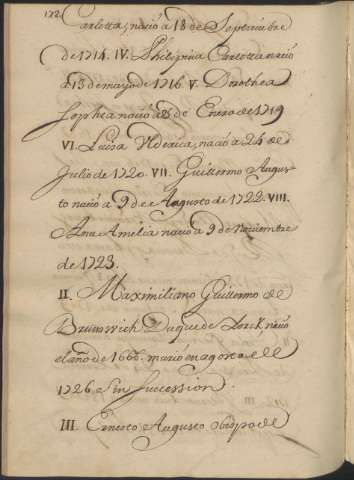 172.
Carlotta, naciò à 18 de Septiembre
de 1714. IV. Philipina Carlotta naciò
à 13 de mayo de 1716 V. Dorothea
Sophia naciò à 25 de Enero de 1719
VI. Luisa Ulderica, naciò a 24 de
Julio de 1720. VII. Guillermo Augus-
to naciò à 9 de Augusto de 1722. VIII.
Ana Amelia naciò a 9 de Noviembre
de 1723.
II. Maximiliano Guillermo de
Brunswich Duque de Iorck, naciò
el año de 1666. muriò en
1726 sin succession.
III. Ernesto Augusto obispo de